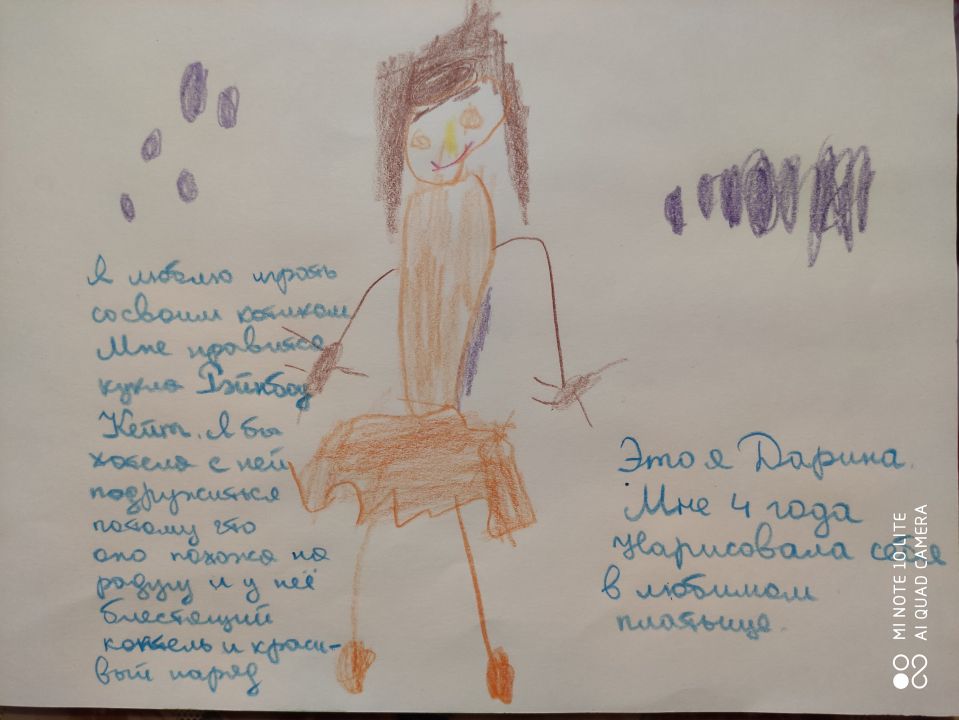 Я люблю играть
со своим котиком
Мне нравится
кукла Рэйнбоу
Кейт. Я бы
хотела с ней
подружиться
потому что
она похожа на
радугу и у неё
блестящий
коктель и краси-
вый наряд
Это я Дарина.
Мне 4 года
Нарисовала себя
в любимом
платьице.
MI NOTE 10 LITE
AI QUAD CAMERA